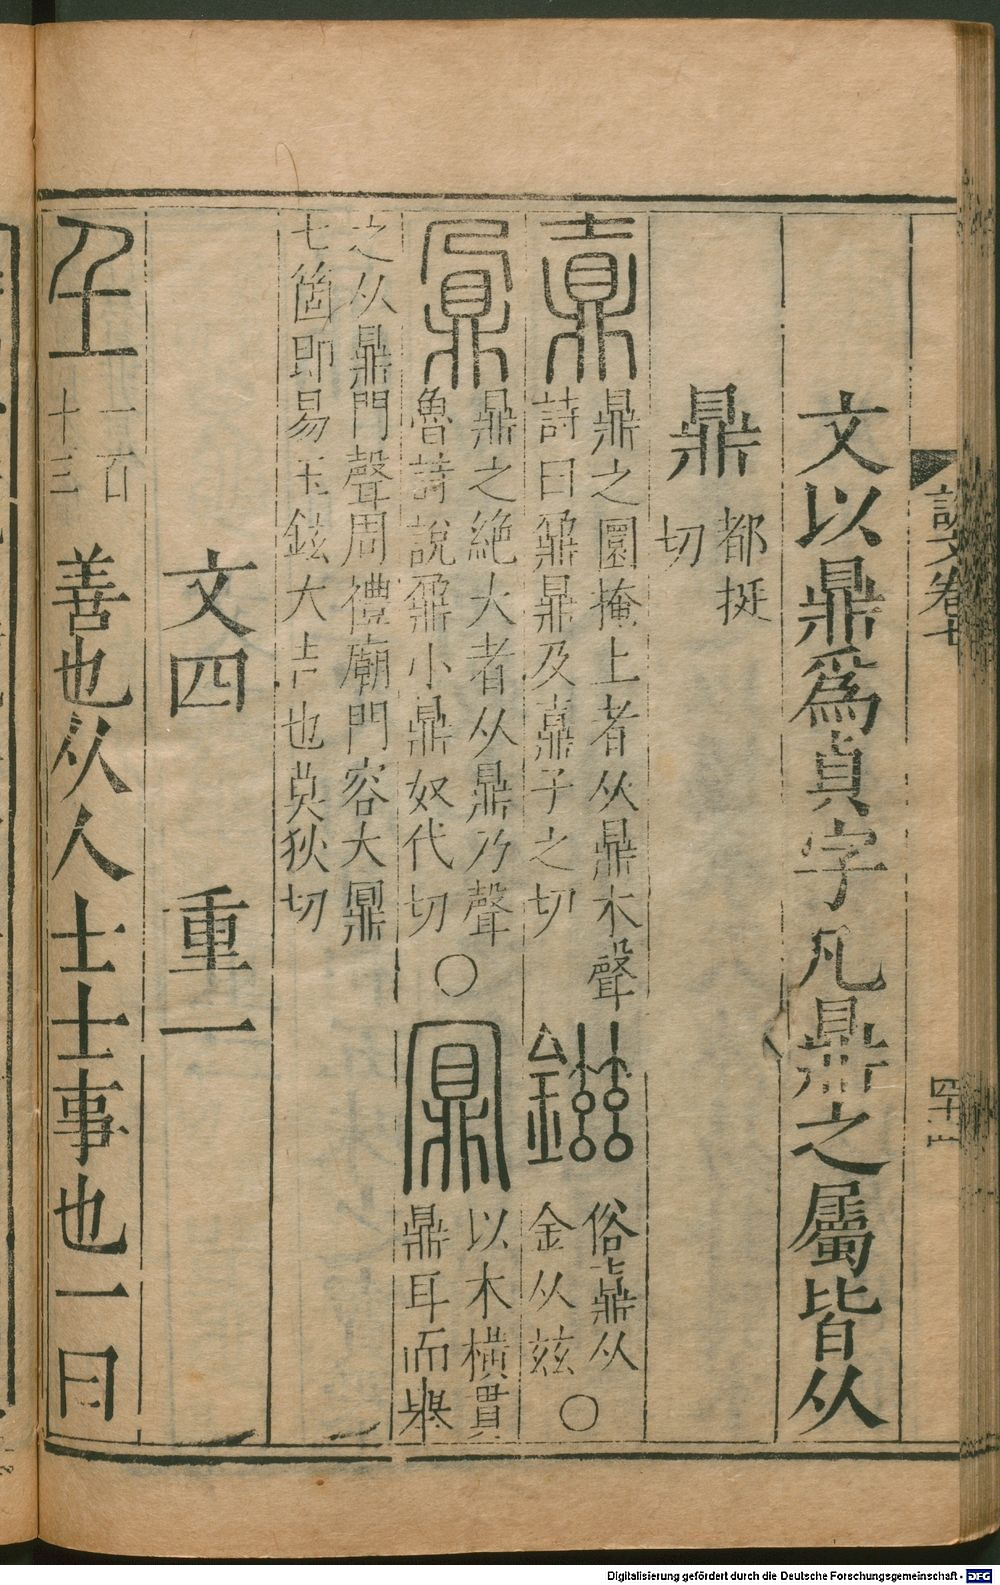 説文卷七
四十二
文以鼎爲貞字凡鼎之屬皆从
鼎 都挺切
鼒 鼎之圜掩上者从鼎才聲
詩曰鼐鼎及鼒子之切
鎡 俗鼒从
金从兹〇
鼐 鼎之絶大者从鼎乃聲
魯詩說鼐小鼎奴代切〇
鼏 以木横貫
鼎耳而舉
之从鼎冂聲周禮廟門容大鼏
七箇即易玉鉉大吉也莫狄切
文四 重一
一百
十三
善也从人士士事也一曰
Digitalisierung gefördert durch die Deutsche Forschungsgemeinschaft - DFG